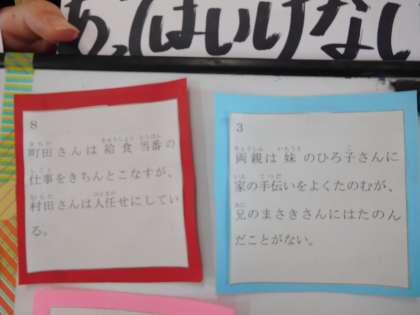 ちってはいけない
8
町田さんは給食当番の
仕事をきちんとこなすが、
村田さんは人任せにしてい
る。
3
両親は妹のひろ子さんに
家の手伝いをよくたのむが、
兄のまさきさんにはたのん
だことがない。